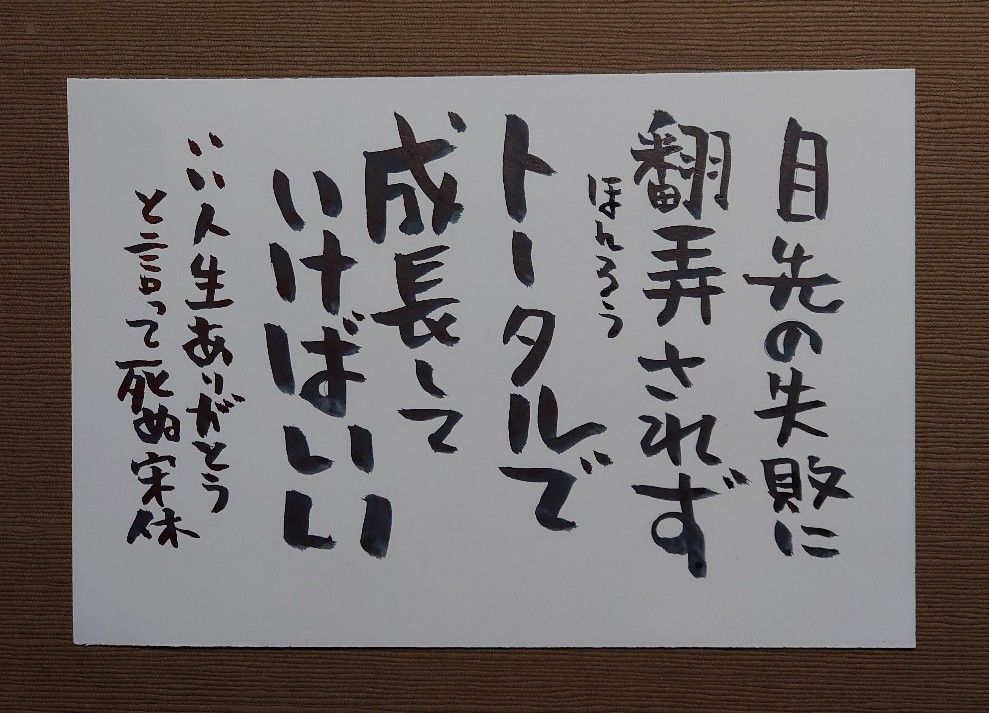 目先の失敗に
翻弄されず
ほんろう
トータルで
成長して
いけばいい
いい人生ありがとう
と言って死ぬ宋休